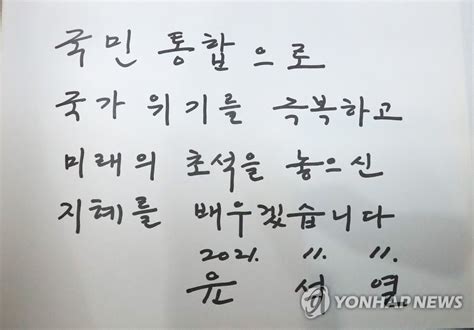 국민 통합으로
국가 위기를 극복하고
미래의 초석을 놓으신
지혜를 배우겠습니다
2021. 11. 11.
윤 석 열
YONHAP NEWS